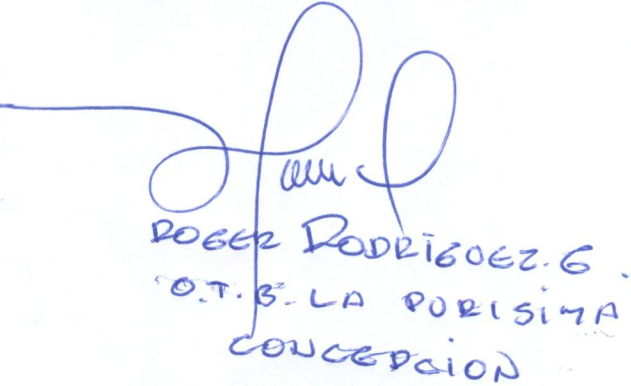 ROGER RODRIGUEZ. G.
O.T.B. LA PURISIMA
CONCEPCION